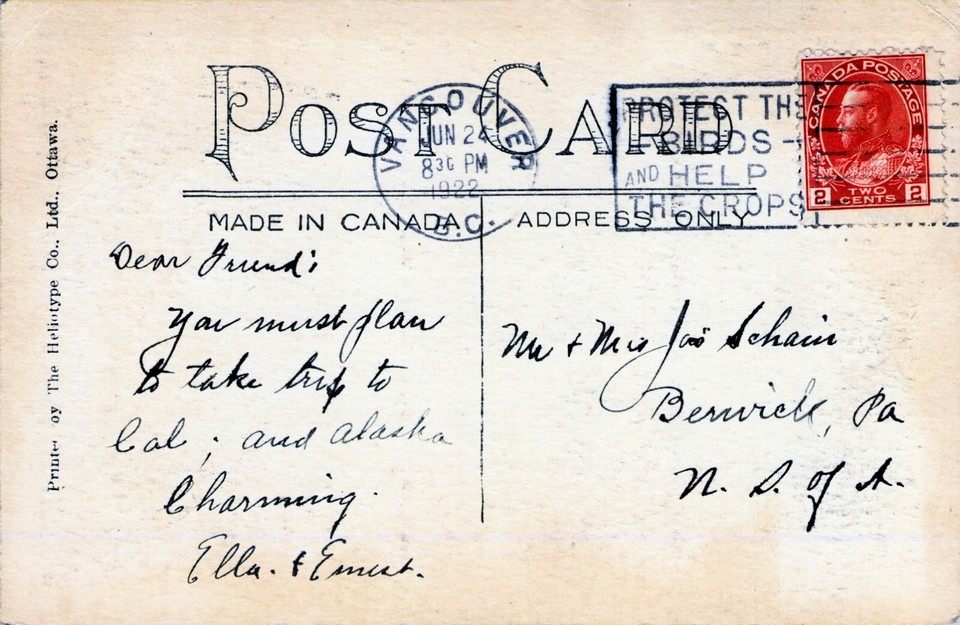 POST CARD
VANCOUVER
JUN 24
8 30 PM
1922
B.C.
PROTECT THE
BIRDS
AND HELP
THE CROPS
CANADA POSTAGE
2 TWO CENTS 2
MADE IN CANADA
ADDRESS ONLY
Printed by The Heliotype Co., Ltd., Ottawa.
Dear Friend:
You must plan
to take trip to
Cal; and Alaska
Charming.
Ella. & Ernest.
Mr + Mrs Jos Schain
Berwick, Pa
U. S. of A.